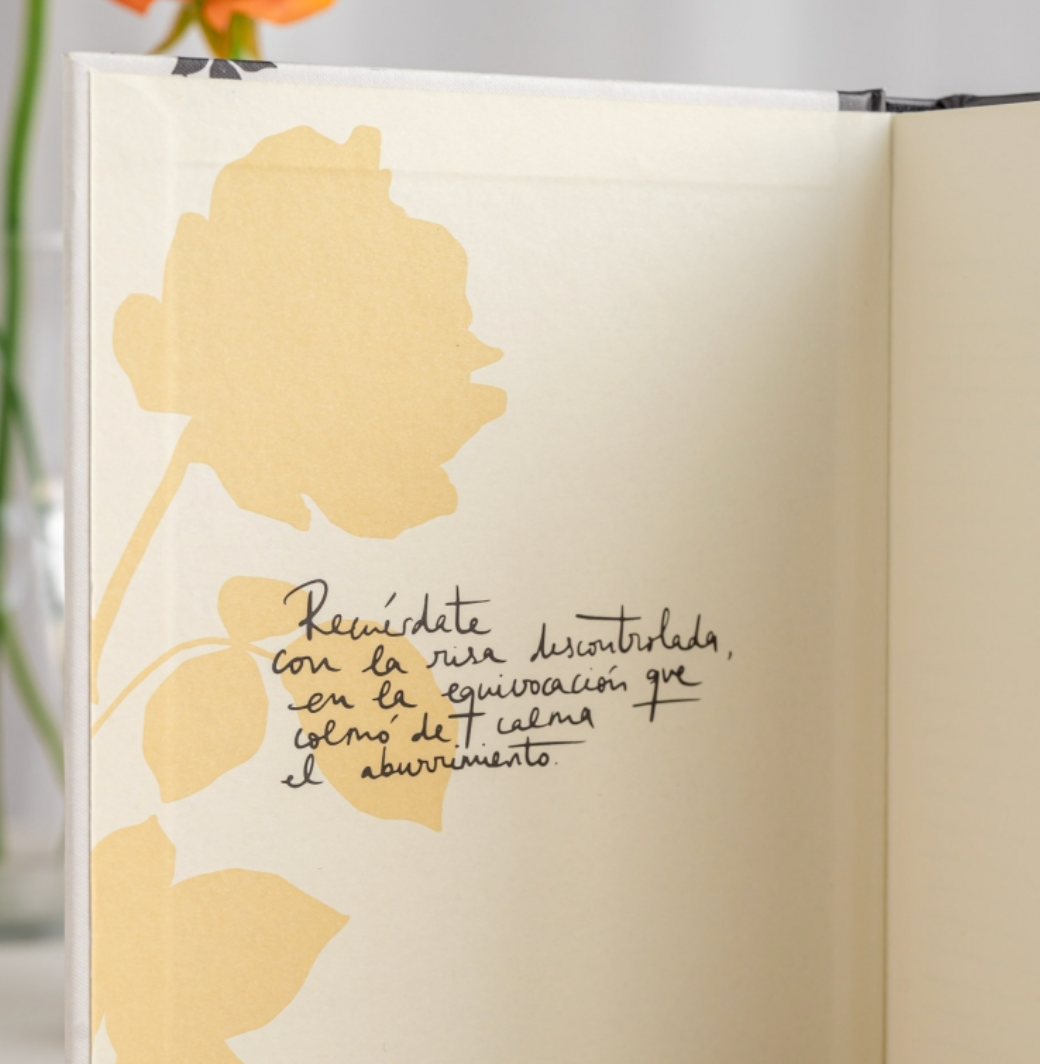 Recuérdate
con la risa descontrolada,
en la equivocación que
colmó de calma
el aburrimiento.